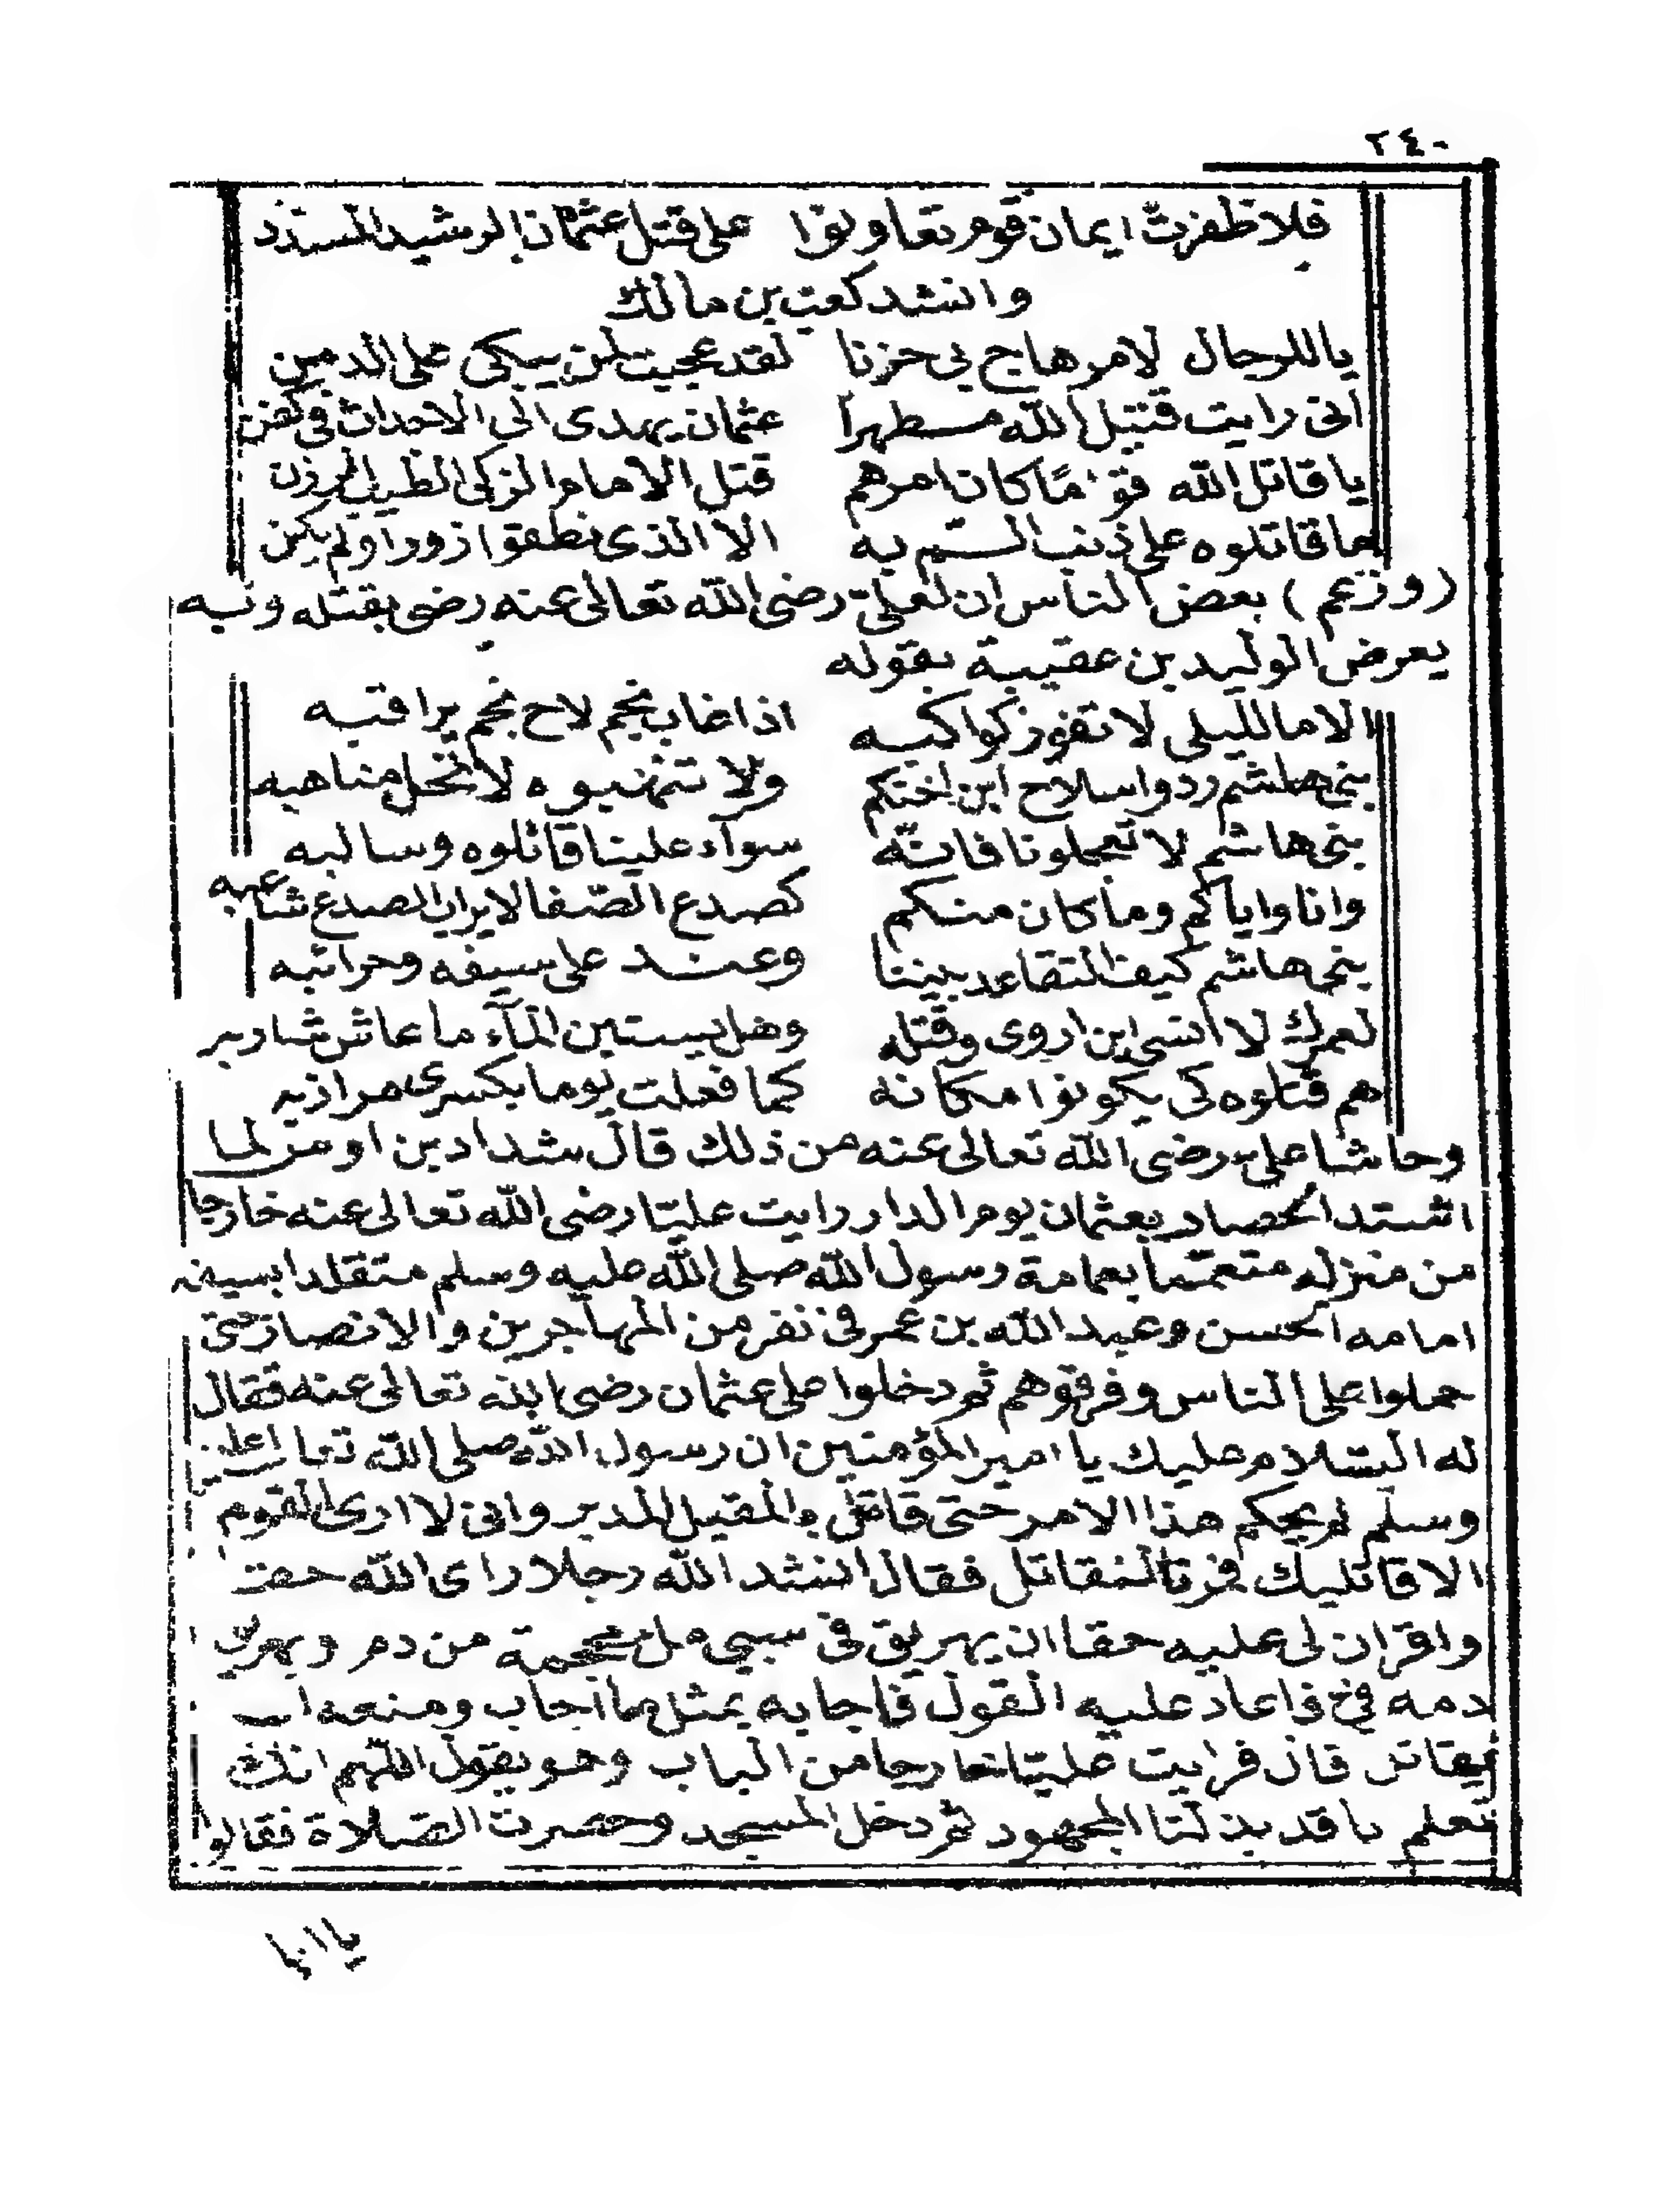 ٢٤٠
فلا ظفرت ايمان قوم تعاونوا على قتل عثمان الرشيد المسدد
وانشد كعب بن مالك
يا للرجال لامر هاج بي حزنا لقد عجبت لمن يبكى على الدمن
انى رايت قتيل الله مسطهرا عثمان يهدى الى الاحداث في كفن
يا قاتل الله قوما كان امرهم قتل الامام الزكى الطيب الردن
ما قاتلوه على ذنب الم به الا الذى نطقوا زورا ولم يكن
(وزعم) بعض الناس ان لعلى رضى الله تعالى عنه رضى بقتله وبه
يعرض الوليد بن عقيبة بقوله
الا ما لليلى لا تغور كواكبه اذا غاب نجم لاح نجم يراقبه
بنى هاشم ردوا سلاح ابن اختكم ولا تنهبوه لا تحل مناهبه
بنى هاشم لا تعجلونا فانه سوآء علينا قاتلوه وسالبه
وانا واياكم وما كان منكم كصدع الصفا لا يراب الصدع شاعبه
بنى هاشم كيف التقاعد بيننا وعند على سيفه وحرائبه
لعمرك لا انسى ابن اروى وقتله وهل يستين المآء ما عاش شاربه
هم قتلوه كى يكونوا مكانه كما فعلت يوما بكسرى مرازبه
وحاشا على رضى الله تعالى عنه من ذلك قال شداد بن اوس لما
اشتد الحصار بعثمان يوم الدار رايت عليّا رضى الله تعالى عنه خارجا
من منزله متعمّما بعمامة رسول الله صلى الله عليه وسلم متقلدا بسيفه
امامه الحسن وعبد الله بن عمر فى نفر من المهاجرين والانصار حتى
حملوا على الناس وفرقوهم ثم دخلوا على عثمان رضى الله تعالى عنه فقال
له السّلام عليك يا امير المؤمنين ان رسول الله صلى الله تعا عليه
وسلم لم يحكم هذا الامر حتى قاتل بالمقبل المدبر وانى لا ارى القوم
الا قاتليك فمرنا لنقاتل فقال انشد الله رجلا راى الله حقا
واقر ان لى عليه حقا ان يهريق فى سببى مل محجمة من دم ويهريق
دمه فى فاعاد عليه القول فاجابه بمثل ما اجاب ومنعه ان
يقاتل قال فرايت عليّا خارجا من الباب وهو يقول اللهم انك
تعلم يا قد بذلنا المجهود ثم دخل المسجد وحضرت الصّلاة فقالوا
يا ابا